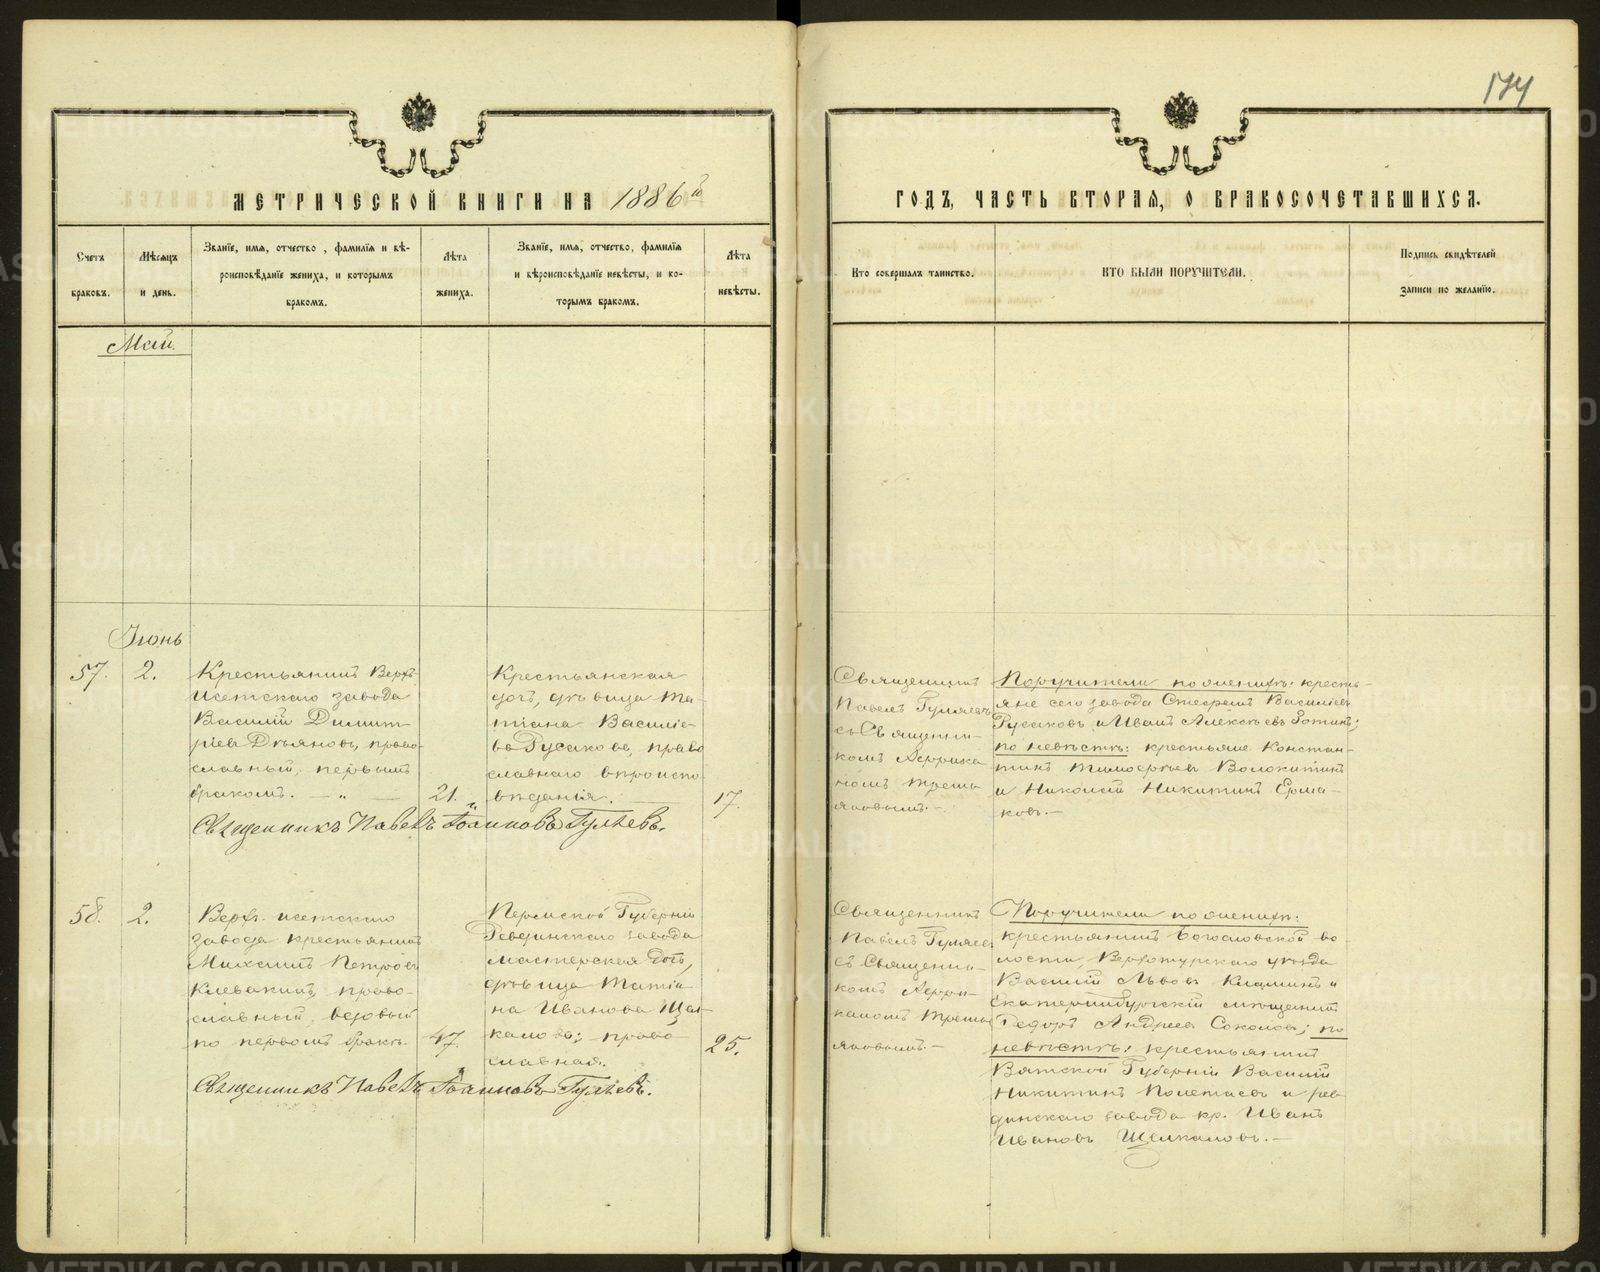 174
МЕТРИЧЕСКОЙ КНИГИ НА 1886й
ГОДЪ, ЧАСТЬ ВТОРАЯ, О БРАКОСОЧЕТАВШИХСЯ.
Счетъ
браковъ.
Мѣсяцъ
и день.
Званіе, имя, отчество, фамилія и вѣ-
роисповѣданіе жениха, и которымъ
бракомъ.
Лѣта
жениха.
Званіе, имя, отчество, фамилія
и вѣроисповѣданіе невѣсты, и ко-
торымъ бракомъ.
Лѣта
невѣсты.
Кто совершалъ таинство.
КТО БЫЛИ ПОРУЧИТЕЛИ.
Подпись свидѣтелей
записи по желанію.
Май.
Іюнь
57.
2.
Крестьянинъ Верхъ
Исетскаго завода
Василій Димит-
ріевъ Деяновъ, право-
славный, первымъ
бракомъ. — „ —
21.
Крестьянская
дочь, дѣвица Та-
тіана Василіе-
ва Русакова, право
славнаго вѣроиспо
вѣданія.
17.
Священникъ Павелъ Іоанновъ Гуляевъ.
Священникъ
Павелъ Гуляевъ
съ Священни-
комъ
Поручители по женихѣ: кресть-
яне сего завода Стефанъ Василіевъ
Русаковъ и Иванъ Алексѣевъ
по невѣстѣ: крестьяне Констан-
тинъ Тимофѣевъ Волокитинъ
и Николай Никитинъ Ерма-
ковъ.—
58.
2.
Верхъ-исетскаго
завода крестьянинъ
Михаилъ Петровъ
Клевакинъ, право-
славный, вдовый
по первомъ бракѣ.
47.
Пермской Губерніи
Ревдинскаго завода
мастерская дочь,
дѣвица Татіа-
на Иванова Щел-
калова; право
славная.
25.
Священникъ Павелъ Іоанновъ Гуляевъ.
Священникъ
Павелъ Гуляевъ
съ Священни-
комъ
Поручители по женихѣ:
крестьянинъ Богословской во-
лости, Верхотурскаго уѣзда
Василій Львовъ и
Екатеринбургскій мѣщанинъ
Ѳедоръ Андреевъ Соколовъ; по
невѣстѣ: крестьянинъ
Вятской Губерніи Василій
Никитинъ Полетаевъ и рев-
динскаго завода кр. Иванъ
Ивановъ Щелкаловъ.—
METRIKI.GASO-URAL.RU